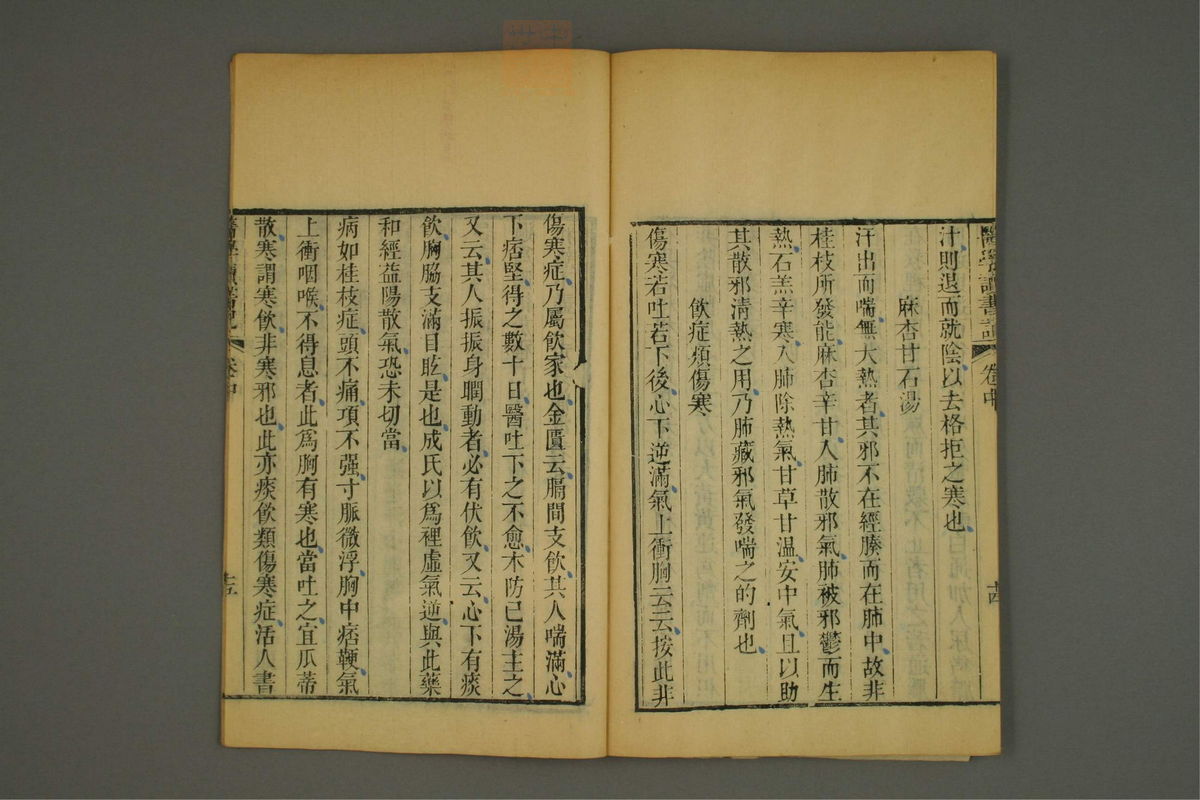 醫學讀書記 卷中
汁則退而就陰以去格拒之寒也
麻杏甘石湯
汗出而喘無大熱者其邪不在經腠而在肺中故非
桂枝所發能麻杏辛甘入肺散邪氣肺被邪鬱而生
熱石羔辛寒入肺除熱氣甘草甘温安中氣且以助
其散邪清熱之用乃肺藏邪氣發喘之的劑也
飲症類傷寒
傷寒若吐若下後心下逆滿氣上衝胸云云按此非
十四
傷寒症乃屬飲家也金匱云膈間支飲其人喘滿心
下痞堅得之數十日醫吐下之不愈木防己湯主之
又云其人振振身瞤動者必有伏飲又云心下有痰
飲胸脇支滿目眩是也成氏以爲裡虛氣逆與此藥
和經益陽散氣恐未切當
病如桂枝症頭不痛項不强寸脈微浮胸中痞鞕氣
上衝咽喉不得息者此爲胸有寒也當吐之宜瓜蒂
散寒謂寒飲非寒邪也此亦痰飲類傷寒症活人書
醫學讀書記 卷中
十五